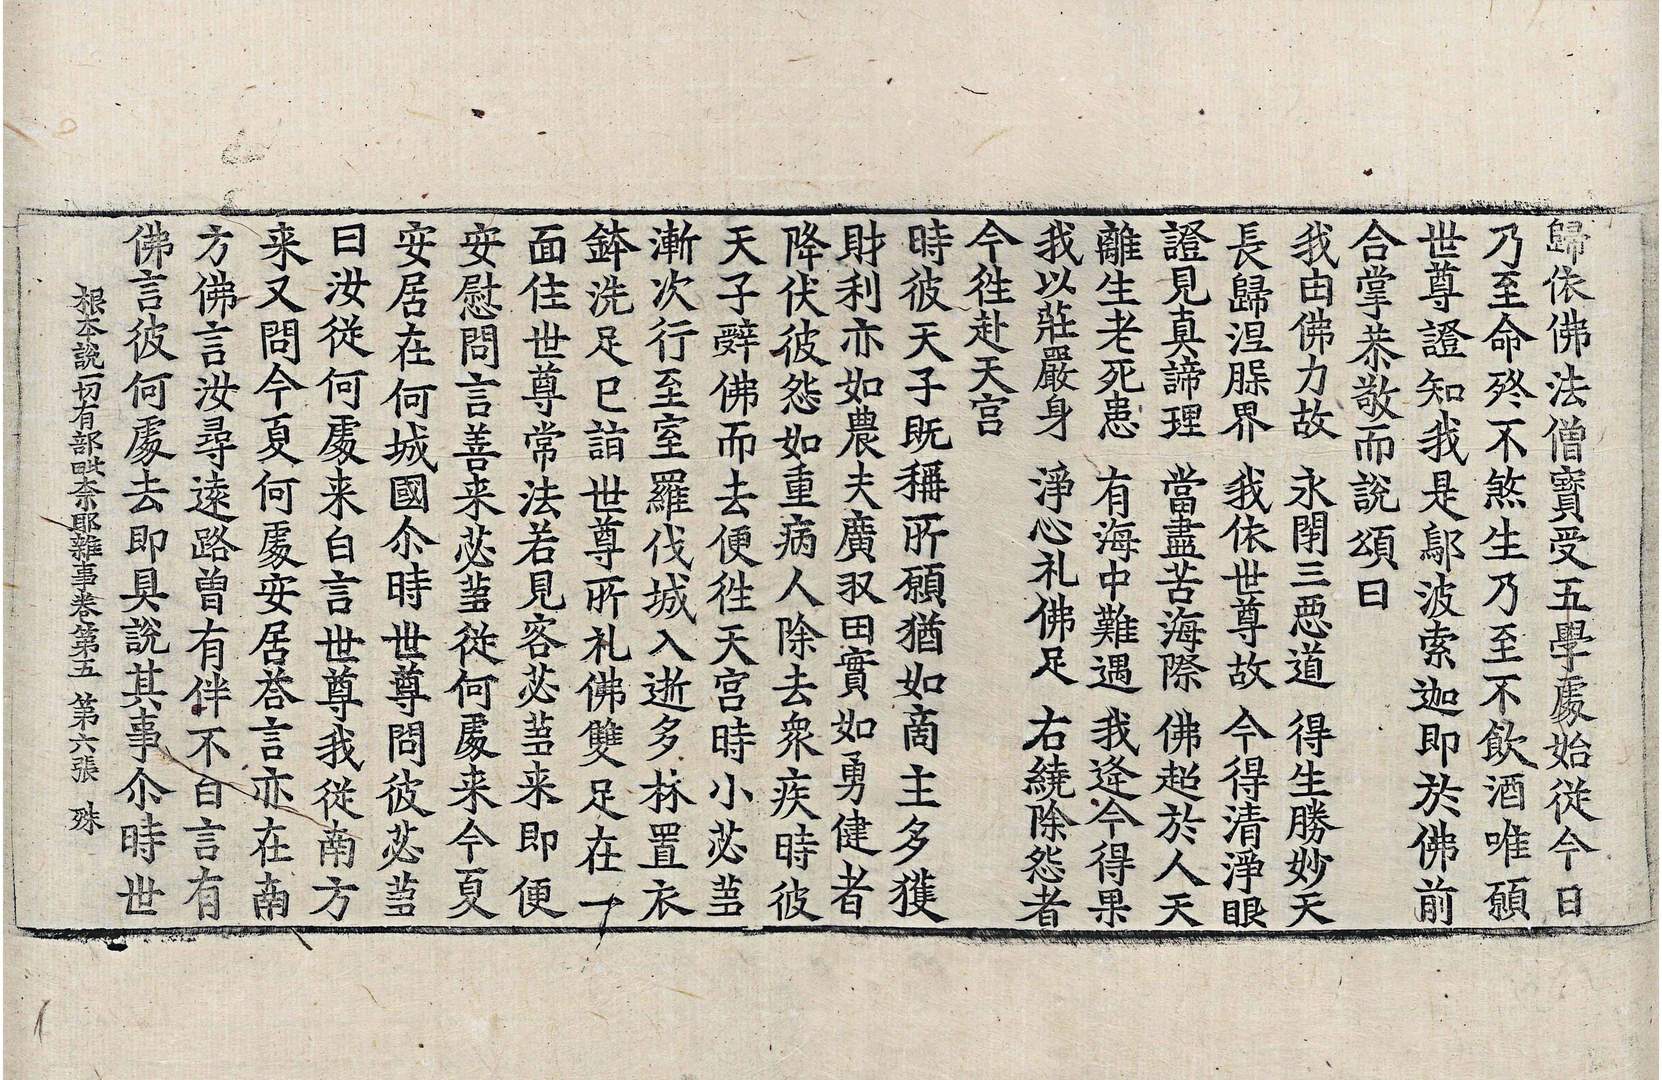 歸依佛法僧寶受五學處始從今日
乃至命終不煞生乃至不飲酒唯願
世尊證知我是鄔波索迦即於佛前
合掌恭敬而說頌曰
我由佛力故　永閇三惡道　得生勝妙天
長歸涅脲界　我依世尊故　今得清淨眼
證見真諦理　當盡苦海際　佛超於人天
離生老死患　有海中難遇　我逢今得果
我以莊嚴身　淨心礼佛足　右繞除怨者
今徃赴天宮
時彼天子既稱所願猶如商主多獲
財利亦如農夫廣収田實如勇健者
降伏彼怨如重病人除去衆疾時彼
天子辝佛而去便徃天宮時小苾蒭
漸次行至室羅伐城入逝多林置衣
鉢洗足已詣世尊所礼佛雙足在一
面住世尊常法若見客苾蒭来即便
安慰問言善来苾蒭從何處来今夏
安居在何城國尒時世尊問彼苾蒭
曰汝從何處来白言世尊我從南方
来又問今夏何處安居荅言亦在南
方佛言汝尋遠路曽有伴不白言有
佛言彼何處去即具說其事尒時世
根本說一切有部毗奈耶雜事卷第五　第六張　殊